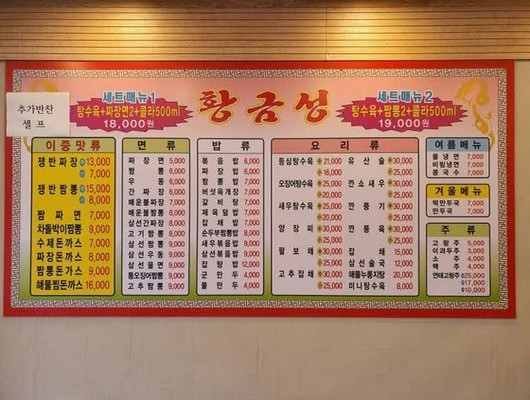 추가반찬
셀 프
세트메뉴1
탕수육+짜장면2+콜라500ml
18,000원
황금성
세트메뉴2
탕수육+짬뽕2+콜라500ml
19,000원
이중맛류
쟁반짜장 13,000
7,000
쟁반짬뽕 15,000
8,000
짬짜면 7,000
차돌박이짬뽕 9,000
수제돈까스 7,000
짜장돈까스 8,000
짬뽕돈까스 9,000
해물찜돈까스 16,000
면 류
짜장면 5,000
짬뽕 6,000
우동 6,000
간짜장 6,000
매운불짜장
매운불짬뽕
삼선간짜장
고기짬뽕
삼선짬뽕 9,000
삼선우동 9,000
삼선울면
통오징어짬뽕
고추짬뽕 9,000
밥 류
볶음밥 6,000
짜장밥 6,000
짬뽕밥 7,000
버섯육개장 7,000
갈비탕 7,000
제육덮밥 7,000
잡채밥 7,000
순두부짬뽕밥 8,000
새우볶음밥
삼선볶음밥
잡탕밥 12,000
군만두 4,000
물만두 4,000
요 리 류
등심탕수육 21,000
16,000
오징어탕수육 30,000
25,000
새우탕수육 30,000
25,000
양장피 30,000
25,000
팔보채 30,000
25,000
고추잡채 30,000
25,000
유산슬 30,000
25,000
깐쇼새우 30,000
25,000
깐풍기 30,000
25,000
깐풍육 30,000
25,000
잡채 15,000
삼선술국 12,000
해물누룽지탕 20,000
미니탕수육 8,000
여름메뉴
물냉면 7,000
비빔냉면 7,000
콩국수 7,000
겨울메뉴
떡만두국 7,000
만두국 7,000
주 류
고량주 5,000
이과두주 3,000
소주 4,000
맥주 4,000
연태고량주 25,000
17,000
10,000